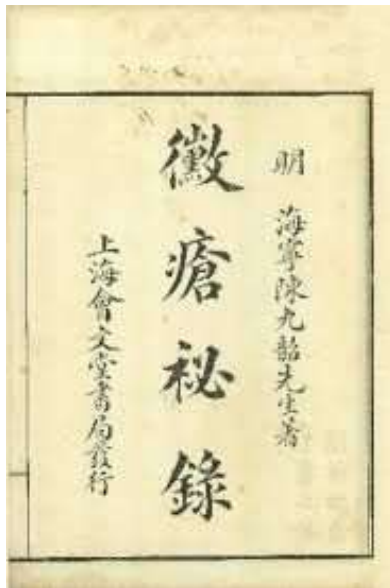 明 海寧陳九韶先生著
黴瘡秘錄
上海會文堂書局發行